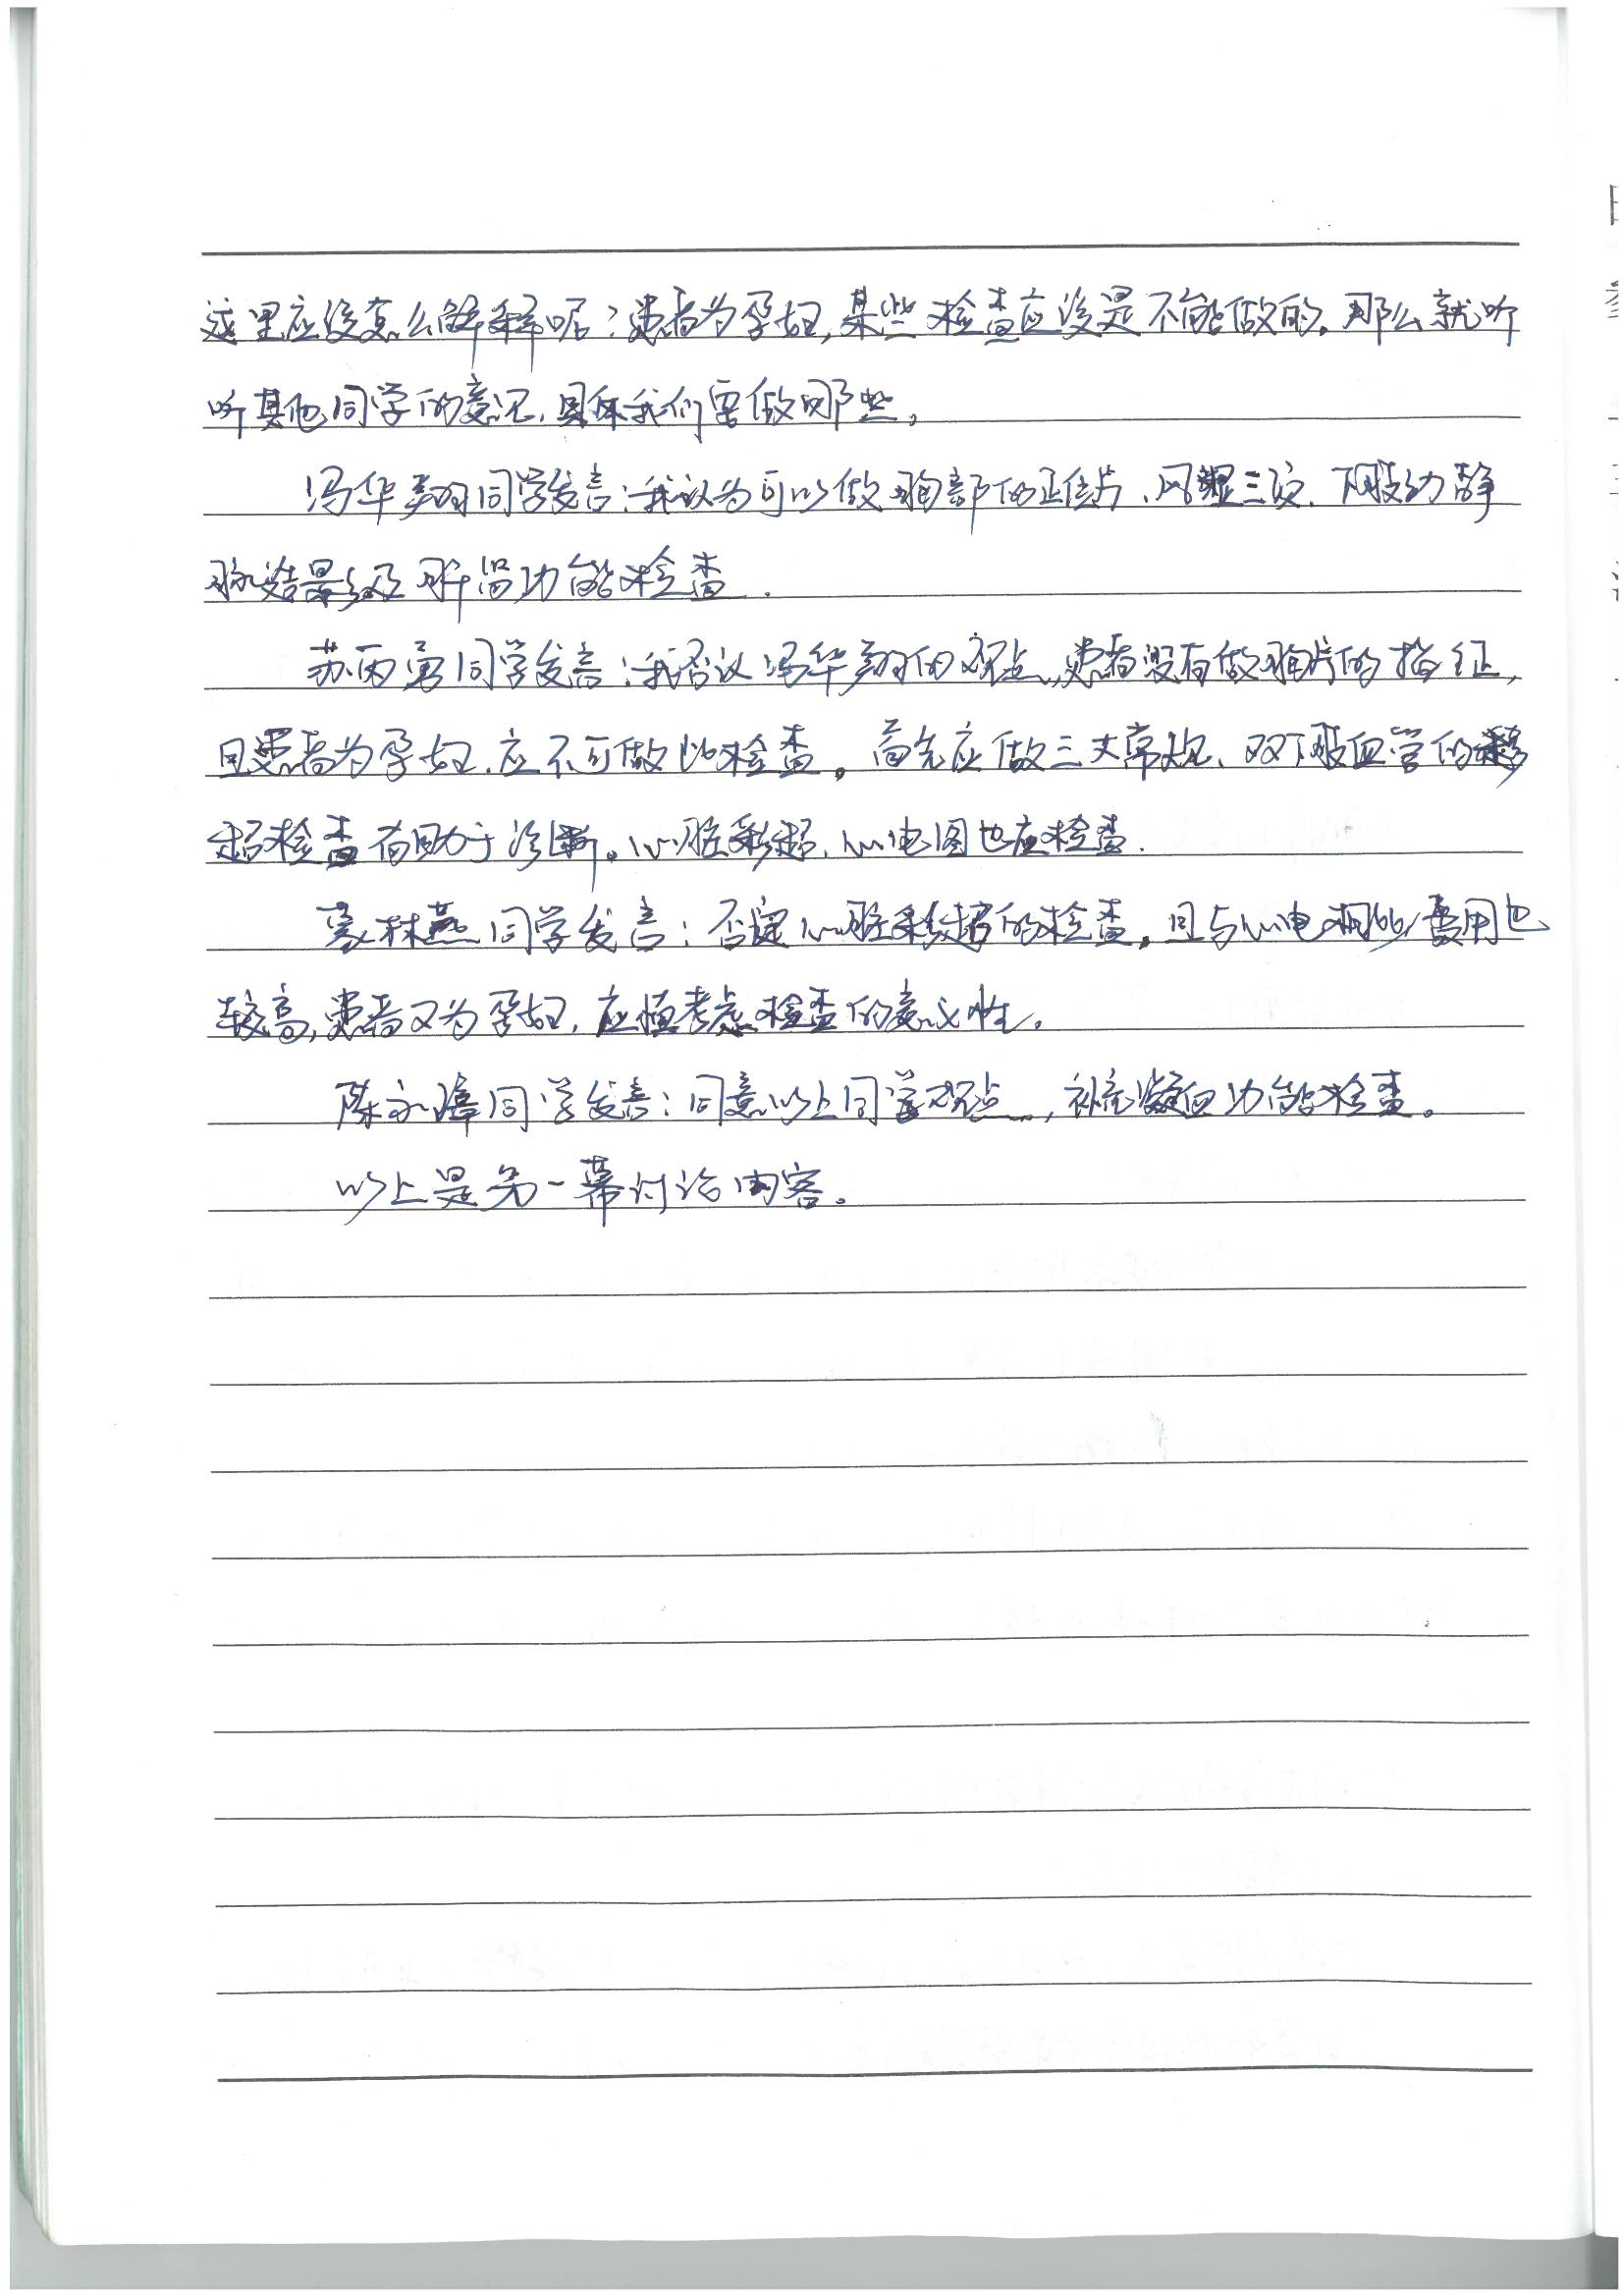 这里应该怎么解释呢?患者为孕妇,某些检查应该是不能做的。那么就听
听其他同学的意见,具体我们要做哪些。
冯华翔同学发言:我认为可以做胸部的正位片、风湿三项、下肢动静
脉造影及肝肾功能检查.
苏丙勇同学发言:我否认冯华翔的观点,患者没有做胸片的指征,
且患者为孕妇,应不可做此检查。首先应做三大常规、双下肢血管的彩
超检查有助于诊断。心脏彩超、心电图也应检查.
蒙林燕同学发言:否定心脏彩超的检查,且与心电相比费用也
较高,患者又为孕妇,应慎考虑检查的意义性。
陈永璋同学发言:同意以上同学观点,补充凝血功能检查。
以上是第一幕讨论内容。